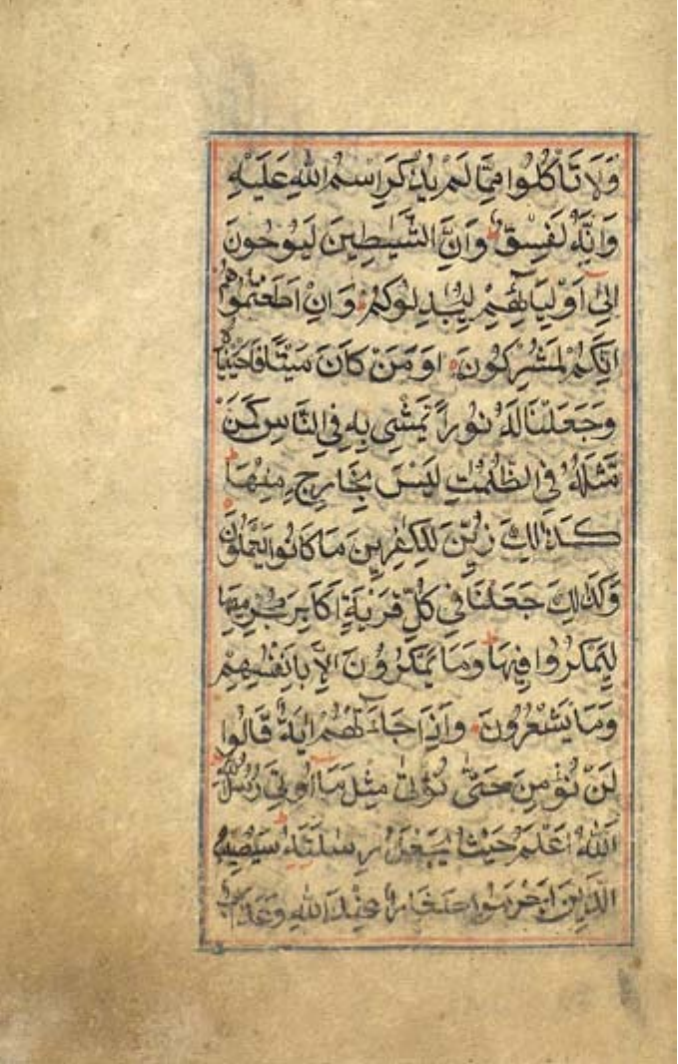 وَلَا تَأْكُلُوا مِمَّا لَمْ يُذْكَرِ اسْمُ اللهِ عَلَيْهِ
وَاِنَّهُ لَفِسْقٌ وَاِنَّ الشَّيٰطِينَ لَيُوحُونَ
اِلٰى اَوْلِيَائِهِمْ لِيُجَادِلُوكُمْ وَاِنْ اَطَعْتُمُوهُمْ
اِنَّكُمْ لَمُشْرِكُونَ اَوَ مَنْ كَانَ مَيْتًا فَاَحْيَيْنَاهُ
وَجَعَلْنَا لَهُ نُوراً يَمْشِي بِهِ فِي النَّاسِ كَمَنْ
مَّثَلُهُ فِي الظُّلُمٰتِ لَيْسَ بِخَارِجٍ مِنْهَا
كَذٰلِكَ زُيِّنَ لِلْكٰفِرِينَ مَا كَانُوا يَعْمَلُونَ
وَكَذٰلِكَ جَعَلْنَا فِي كُلِّ قَرْيَةٍ اَكَابِرَ مُجْرِمِيهَا
لِيَمْكُرُوا فِيهَا وَمَا يَمْكُرُونَ اِلَّا بِاَنْفُسِهِمْ
وَمَا يَشْعُرُونَ وَاِذَا جَاءَتْهُمْ اٰيَةٌ قَالُوا
لَنْ نُؤْمِنَ حَتّٰى نُؤْتٰى مِثْلَ مَا اُوتِيَ رُسُلُ اللهِ
اَللهُ اَعْلَمُ حَيْثُ يَجْعَلُ رِسٰلَتَهُ سَيُصِيبُ
الَّذِينَ اَجْرَمُوا صَغَارٌ عِنْدَ اللهِ وَعَذَابٌ